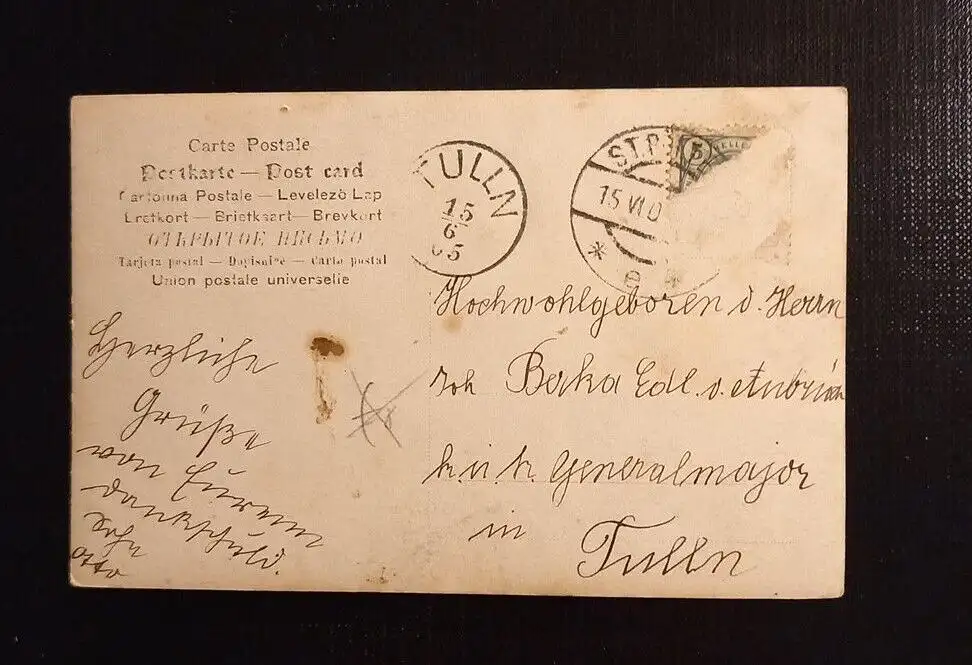 Carte Postale
Postkarte — Post card
Cartolina Postale — Levelező Lap
Brefkort — Briefkaart — Brevkort
ОТКРЫТОЕ ПИСЬМО
Tarjeta postal — Dopisnice — Carta postal
Union postale universelle
TULLN
15
6
05
ST. P
15 VI 0
* e *
5
ELLE
Hochwohlgeboren d. Herrn
Joh Berka Edl. v.
k. u. k. Generalmajor
in
Tulln
Herzliche
Grüße
von Eurem
dankschuld.
Sohn
Otto